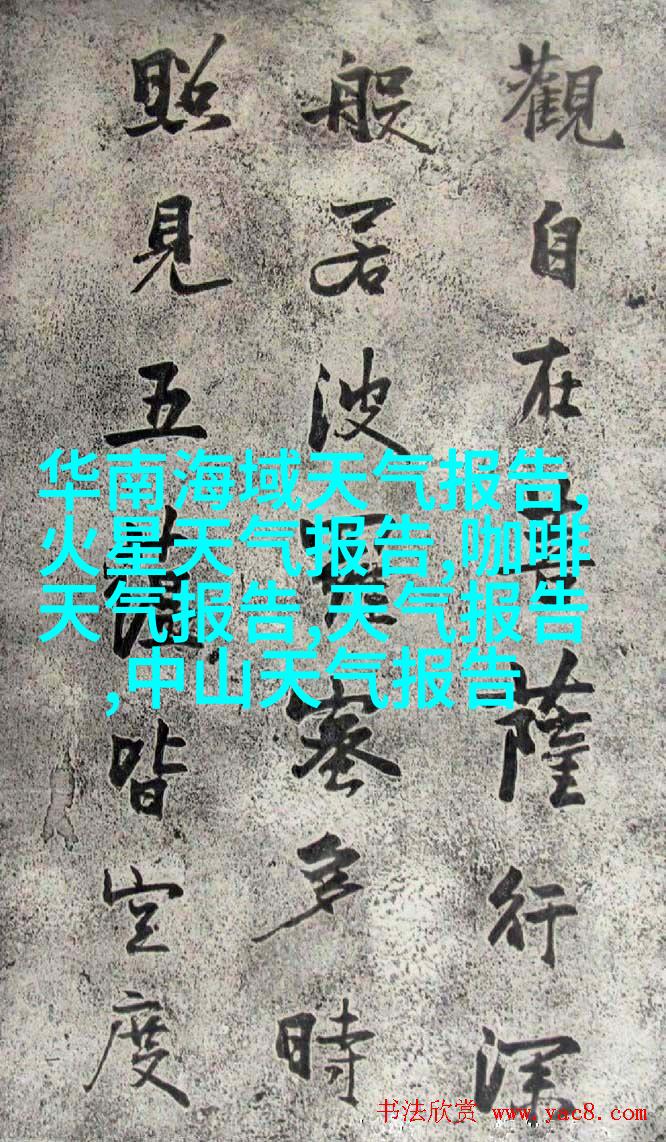 觀自在菩薩行深
般若波羅蜜多時
照見五蘊皆空度
华南海域天气报告,
火星天气报告,咖啡
天气报告,天气报告
,中山天气报告
书法欣赏 www.yac8.com